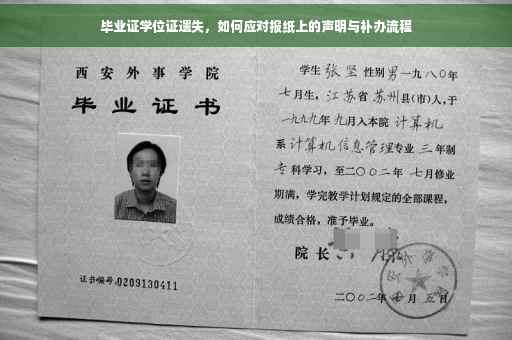 毕业证学位证遗失，如何应对报纸上的声明与补办流程
西安外事学院
毕业证书
证书编号:0209130411
学生 张坚 性别 男 一九八〇年
七月生，江苏省 苏州县(市)人,于
一九九九年 九月入本院 计算机
系 计算机信息管理专业 三 年制
专科学习，至二〇〇二年 七月修业
期满，学完教学计划规定的全部课程，
成绩合格，准予毕业。
院长
二〇〇二年 七月 五日